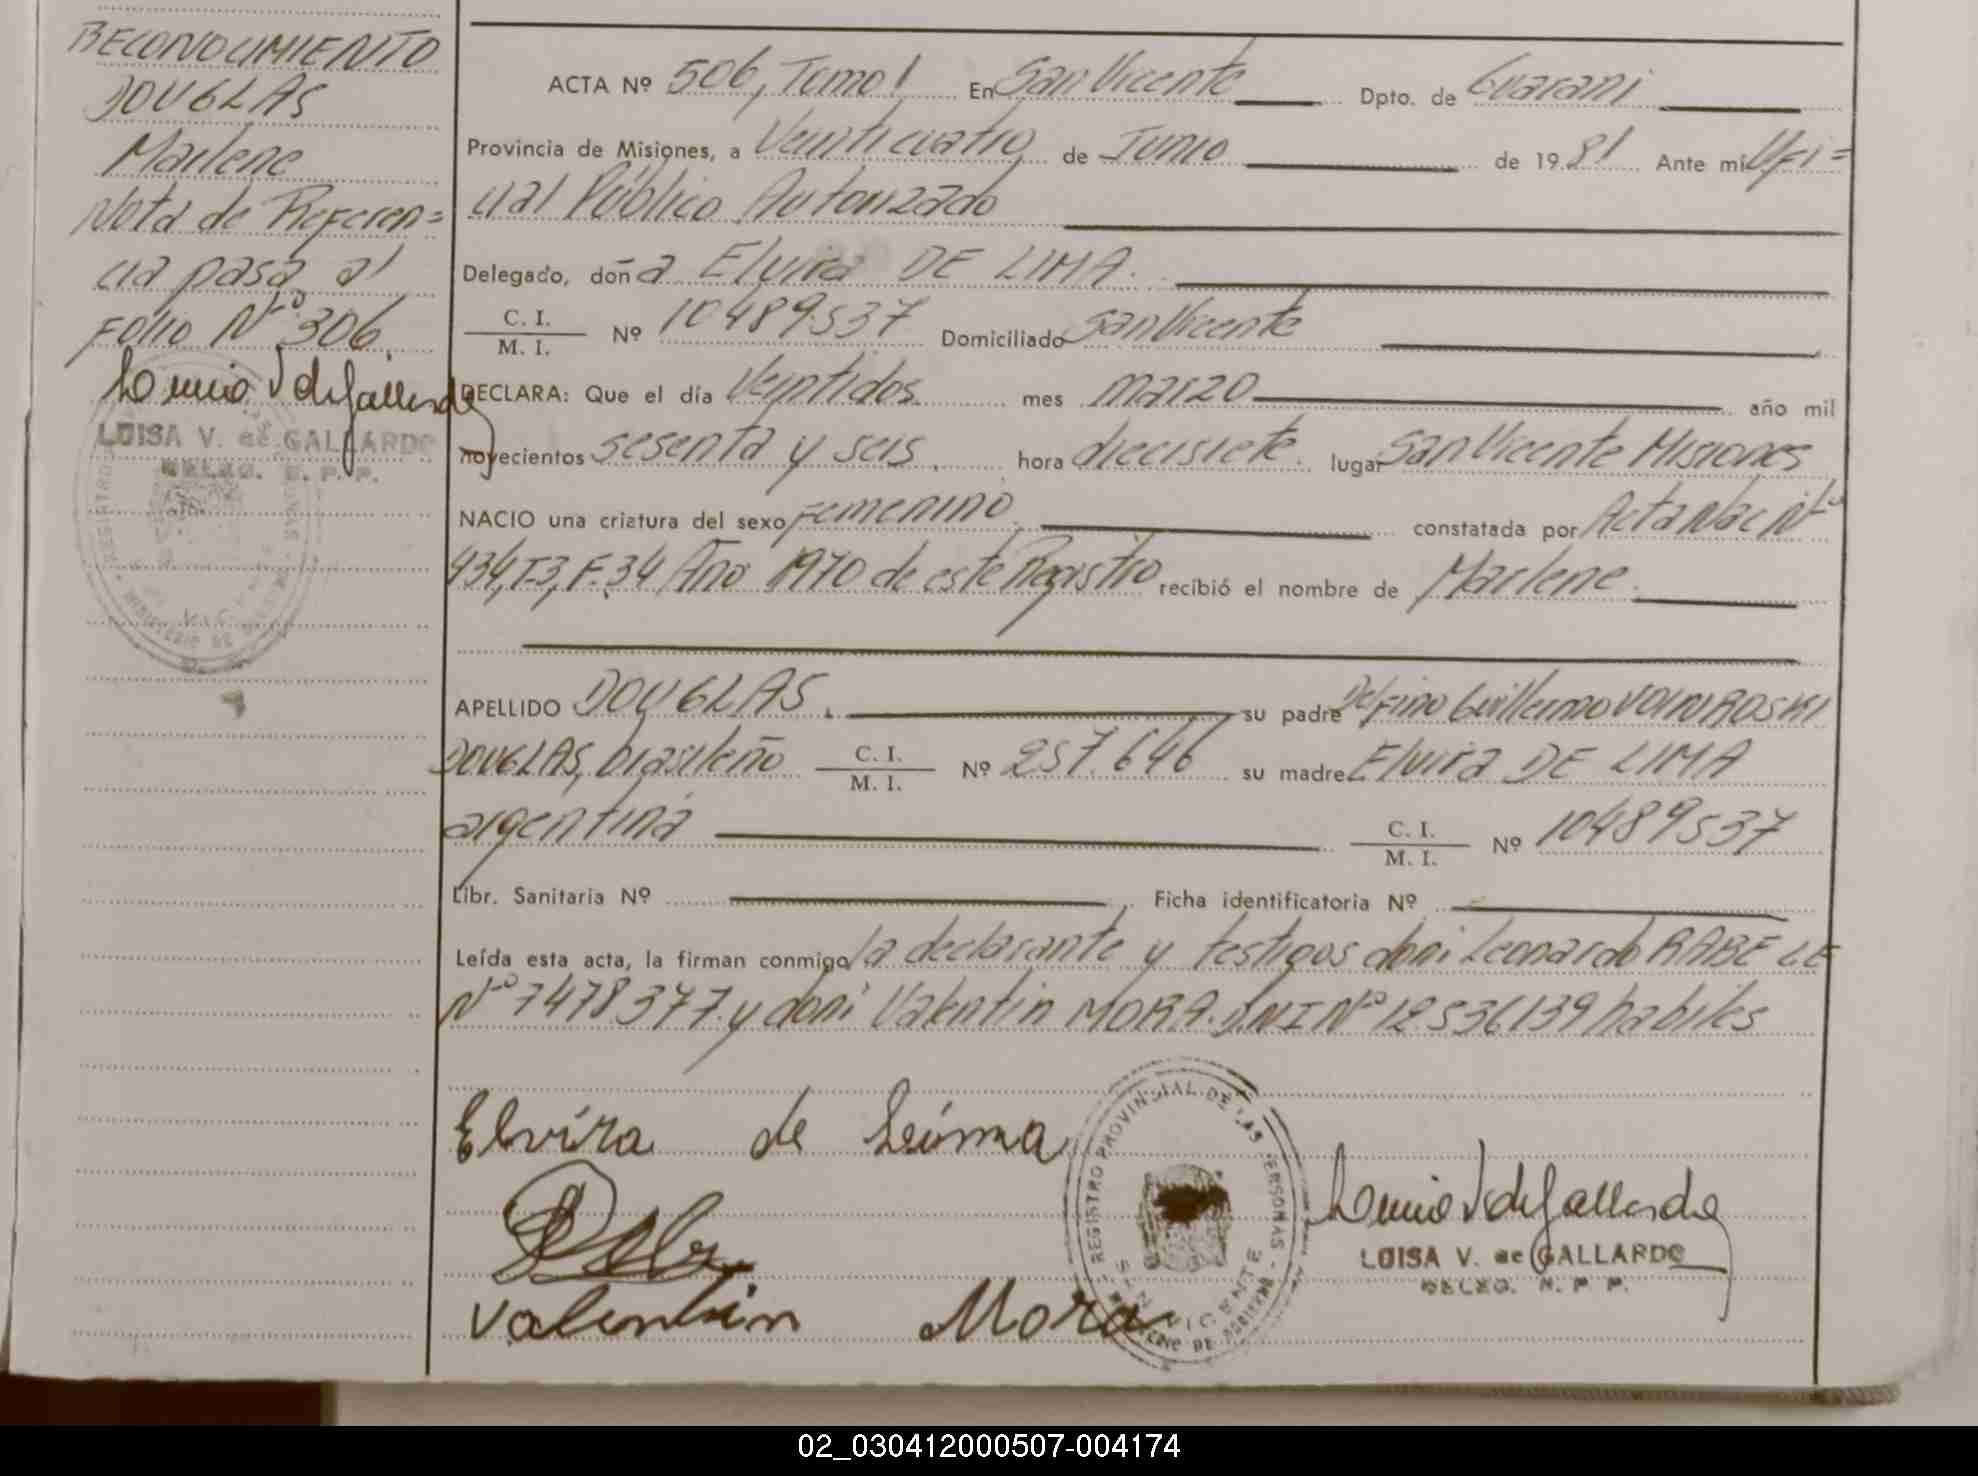 RECONOCIMIENTO
DOUGLAS
Marlene
Nota de Referen=
cia pasa al
Folio Nº 306.
LUISA V. de GALLARDO
DELEG. R. P. P.
ACTA Nº 506, Tomo I En San Vicente Dpto. de Guarani
Provincia de Misiones, a Veinticuatro de Junio de 1981 Ante mi Ofi=
cial Público Autorizado
Delegado, doña Elvira DE LIMA.
C. I.
M. I. Nº 10489537 Domiciliado San Vicente
DECLARA: Que el día Veintidos mes marzo año mil
novecientos sesenta y seis. hora diecisiete. lugar San Vicente Misiones
NACIO una criatura del sexo femenino. constatada por Acta Nac Nº
434, T-3, F. 34 Año 1970 de este Registro recibió el nombre de Marlene.
APELLIDO DOUGLAS. su padre Delfino Guillermo
DOUGLAS, brasileño C. I.
M. I. Nº 257.646 su madre Elvira DE LIMA
argentina C. I.
M. I. Nº 10489537
Libr. Sanitaria Nº Ficha identificatoria Nº
Leída esta acta, la firman conmigo la declarante y testigos don: Leonardo RABE LE
Nº 7478377. y don: Valentin MORA. DNI Nº 12536139 habiles
Elvira de Leima
Valentin Mora
REGISTRO PROVINCIAL DE LAS PERSONAS
SAN VICENTE
LUISA V. de GALLARDO
DELEG. R. P. P.
02_030412000507-004174